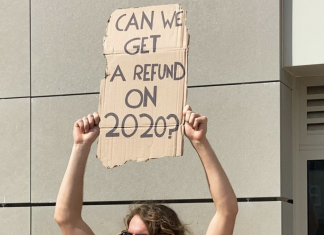 CAN WE
GET
A REFUND
ON
2020?